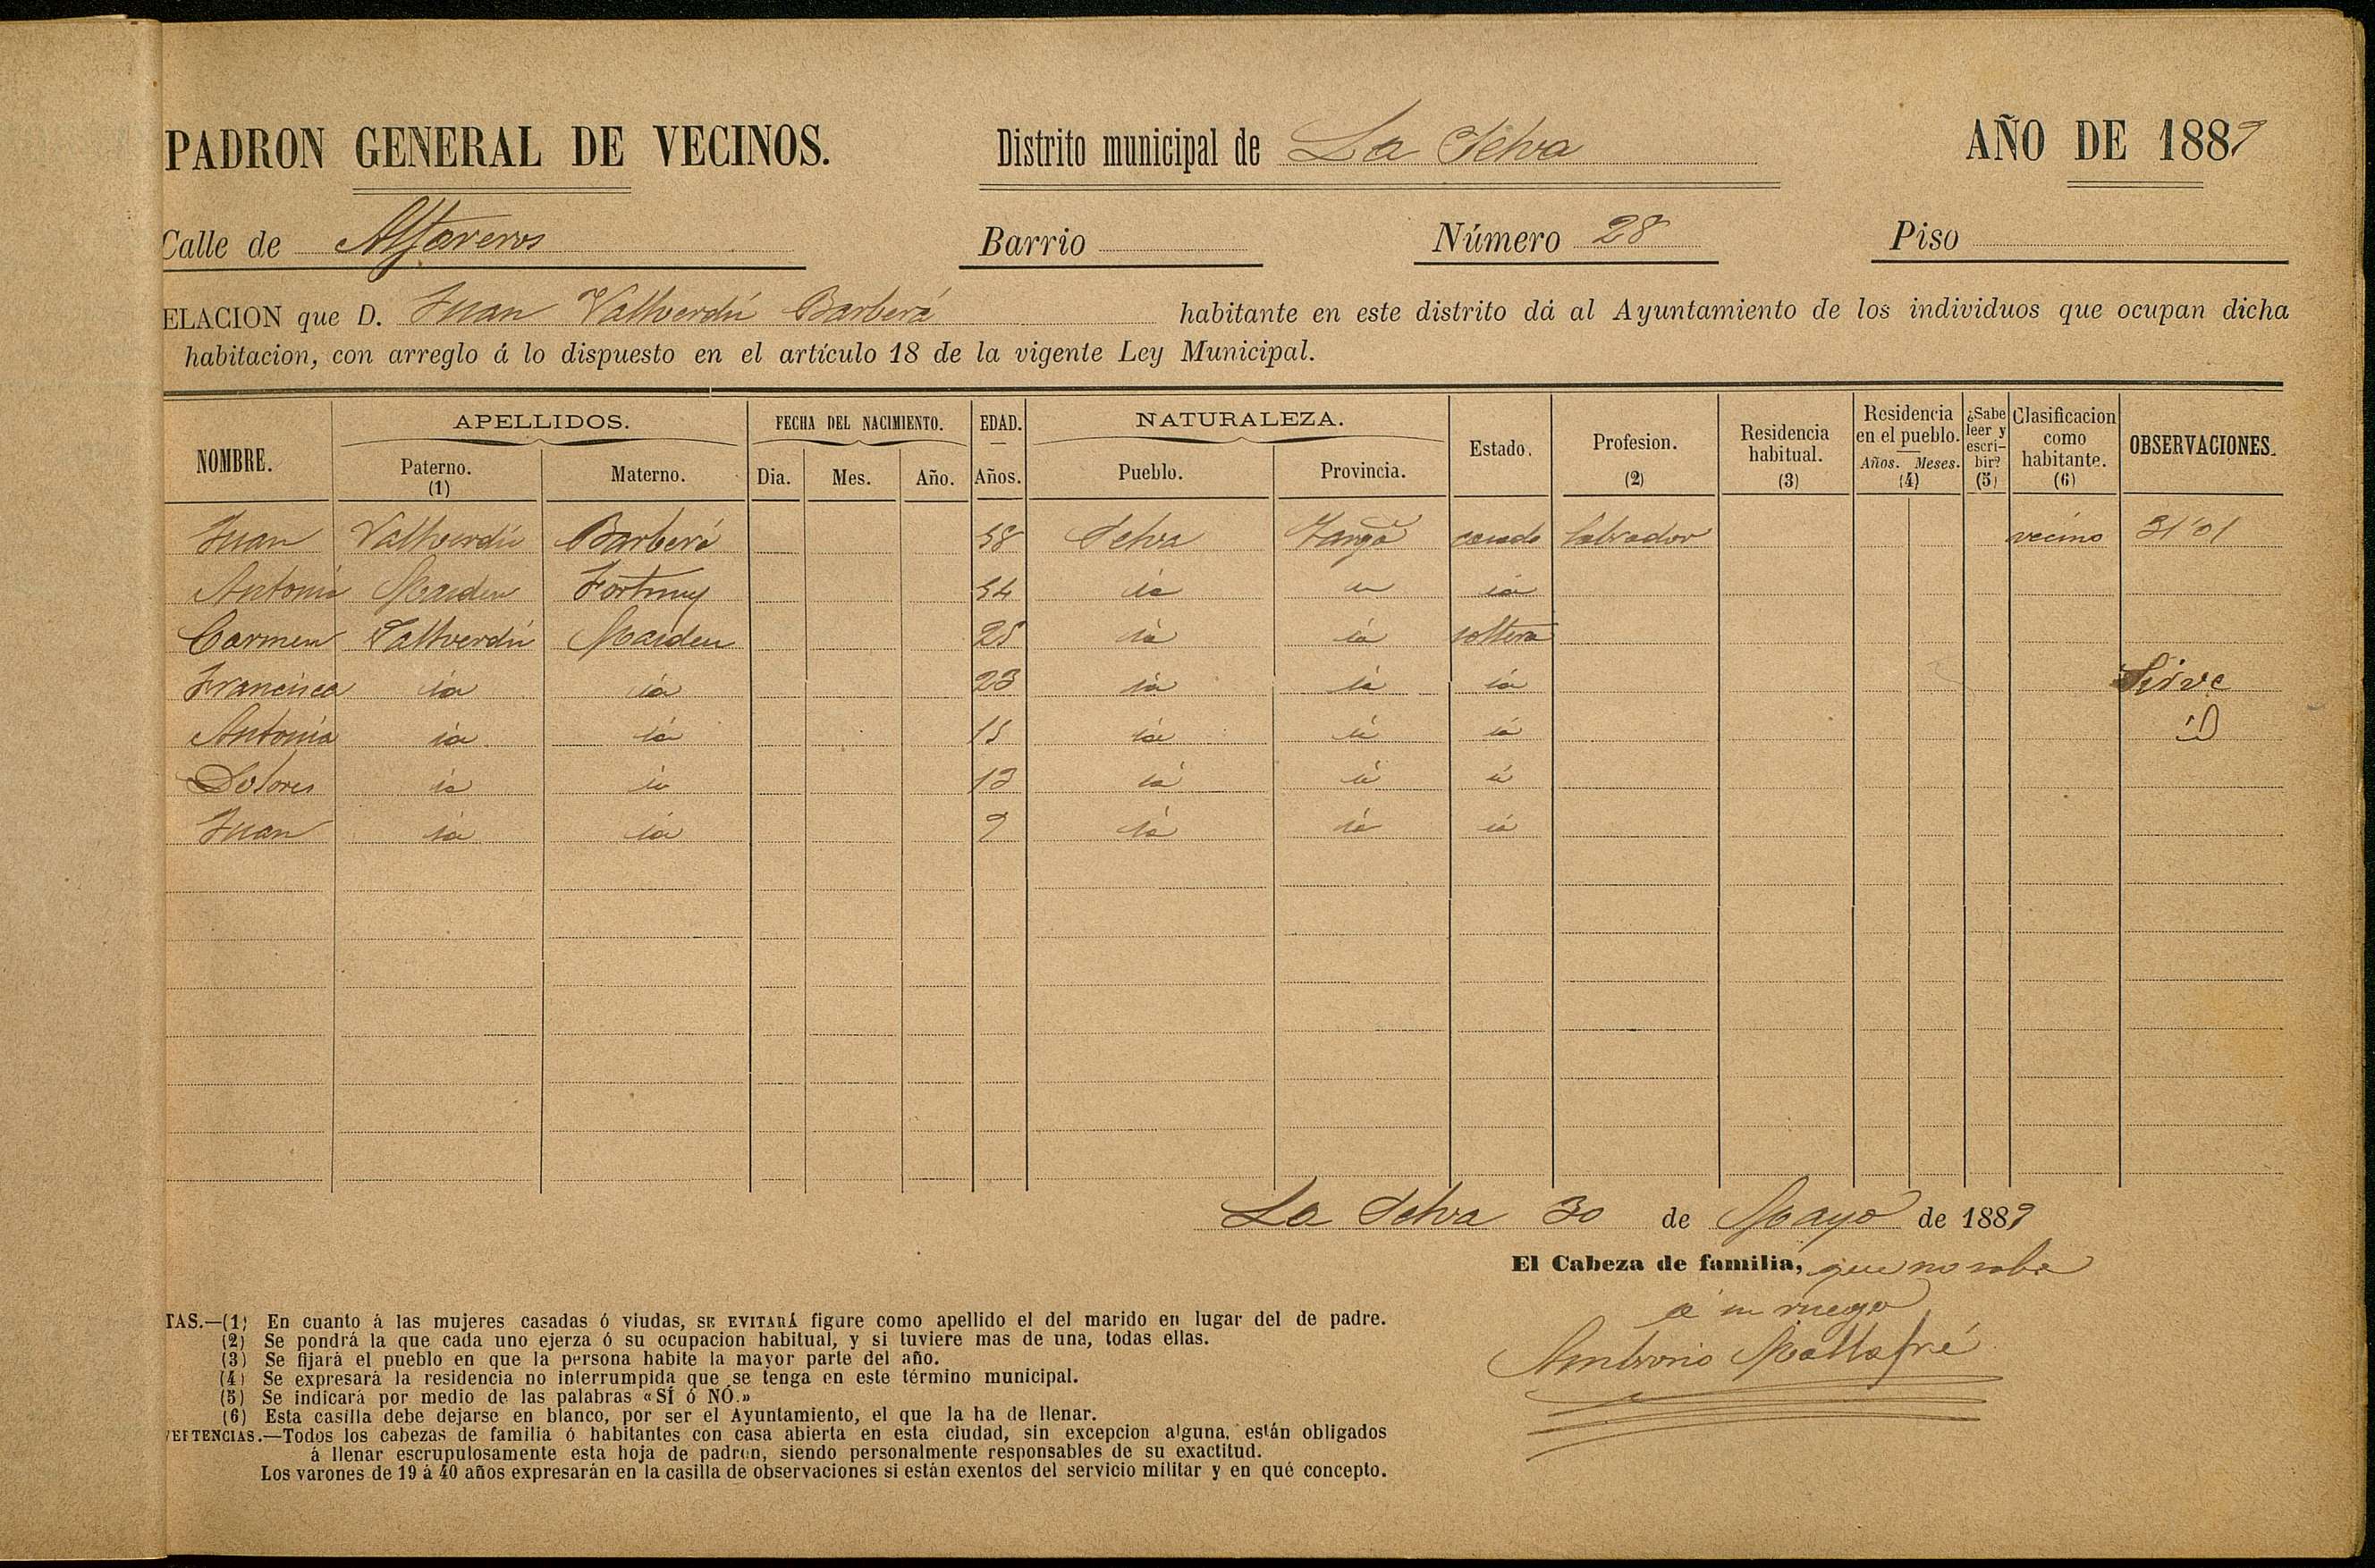 PADRON GENERAL DE VECINOS. Distrito municipal de La Selva AÑO DE 1889
Calle de Alfareros Barrio Número 28 Piso
ELACION que D. Juan Vallverdú Barberá habitante en este distrito dá al Ayuntamiento de los individuos que ocupan dicha
habitacion, con arreglo á lo dispuesto en el artículo 18 de la vigente Ley Municipal.
NOMBRE. APELLIDOS. FECHA DEL NACIMIENTO. EDAD. NATURALEZA. Estado. Profesion. (2) Residencia habitual. (3) Residencia en el pueblo. Años. Meses. (4) ¿Sabe leer y escribir? (5) Clasificacion como habitante. (6) OBSERVACIONES.
Paterno. (1) Materno. Dia. Mes. Año. Años. Pueblo. Provincia.
Juan Vallverdú Barberá 58 Selva Tarrgª casado labrador vecino 31'01
Antonia Fortuny 54 id id id
Carmen Vallverdú 25 id id soltera
Francisca id id 23 id id id Sirve
Antonia id id 15 id id id iD
Dolores id id 13 id id id
Juan id id 9 id id id
La Selva 30 de Mayo de 1889
El Cabeza de familia, que no sabe
á su ruego
Ambrosio Mallafré
TAS.—(1) En cuanto á las mujeres casadas ó viudas, SE EVITARÁ figure como apellido el del marido en lugar del de padre.
(2) Se pondrá la que cada uno ejerza ó su ocupacion habitual, y si tuviere mas de una, todas ellas.
(3) Se fijará el pueblo en que la persona habite la mayor parte del año.
(4) Se expresará la residencia no interrumpida que se tenga en este término municipal.
(5) Se indicará por medio de las palabras «SÍ ó NÓ.»
(6) Esta casilla debe dejarse en blanco, por ser el Ayuntamiento, el que la ha de llenar.
VERTENCIAS.—Todos los cabezas de familia ó habitantes con casa abierta en esta ciudad, sin excepcion alguna, están obligados
á llenar escrupulosamente esta hoja de padron, siendo personalmente responsables de su exactitud.
Los varones de 19 á 40 años expresarán en la casilla de observaciones si están exentos del servicio militar y en qué concepto.